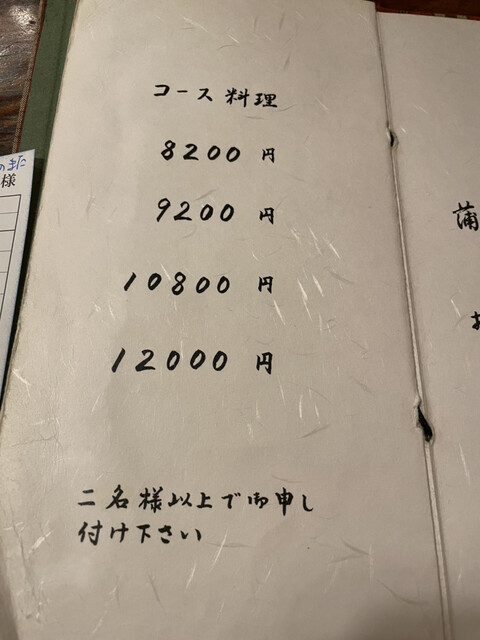 コース料理
8200円
9200円
10800円
12000円
二名様以上で御申し
付け下さい
様
蒲